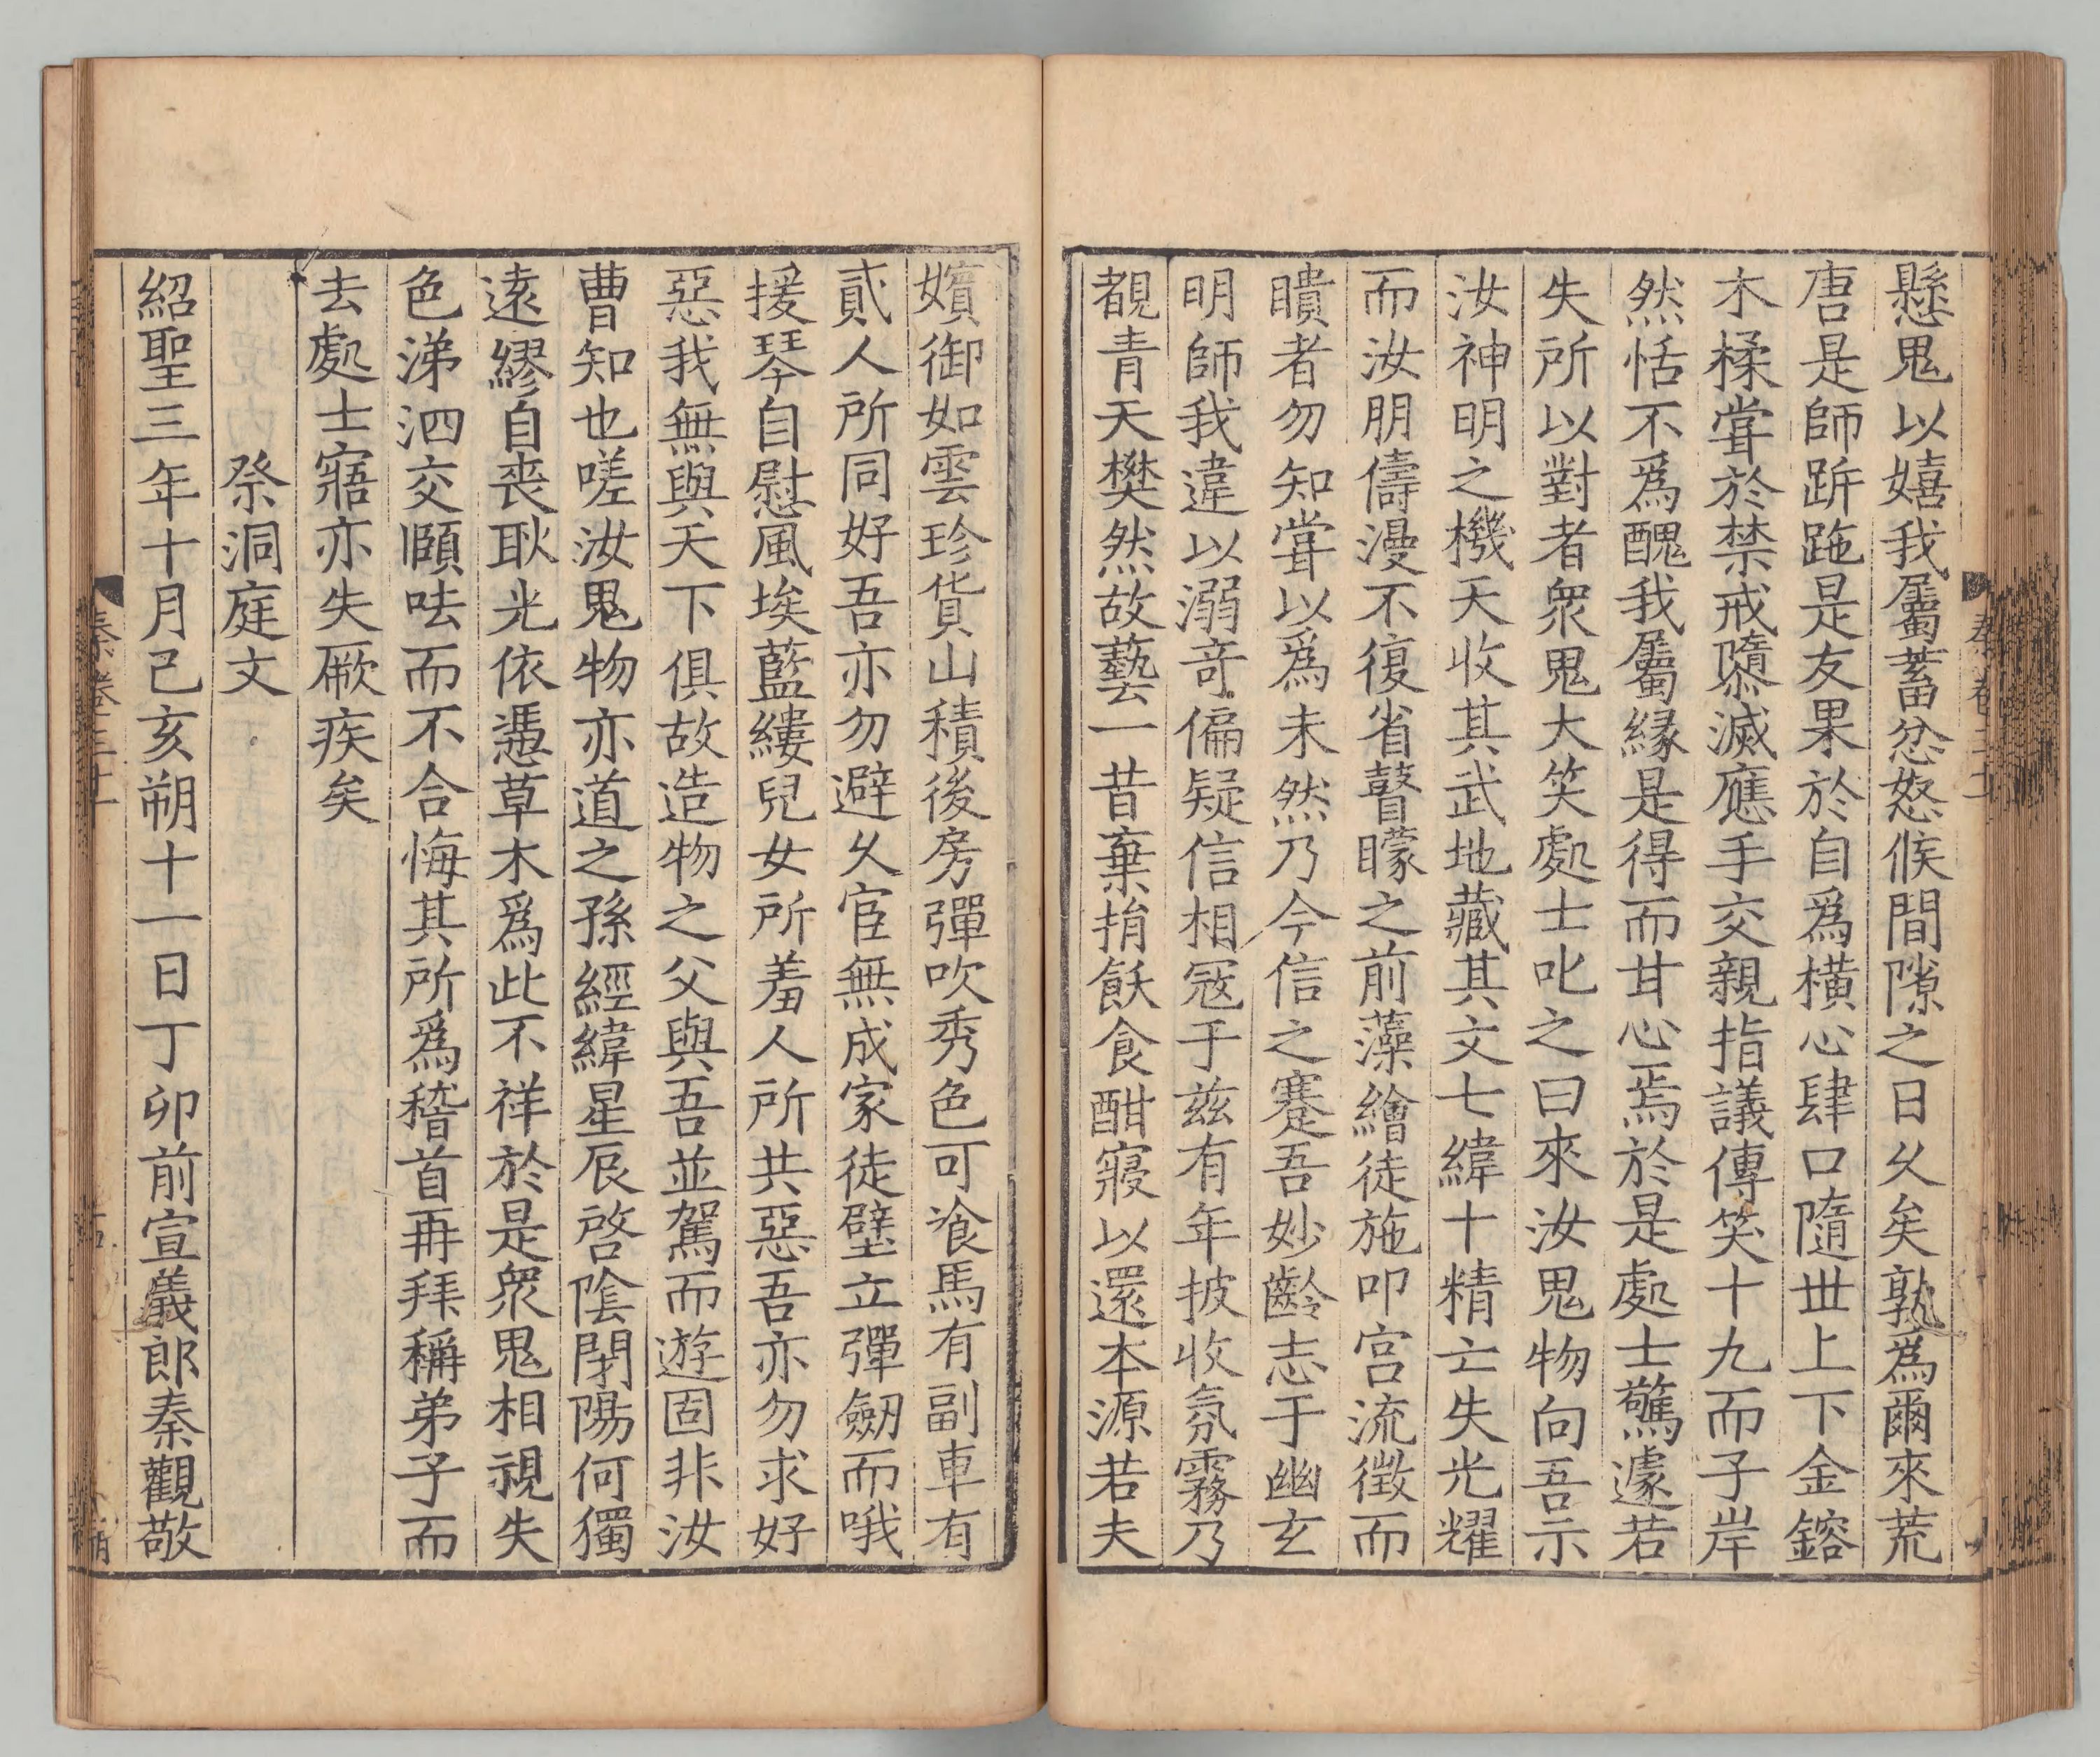 懸鬼以嬉我屬蓄忿怒候間隙之日久矣孰爲爾來荒
唐是師跅跑是友果於自爲橫心肆口隨世上下金鎔
木楺甞於禁戒隳滅應手交親指議傳笑十九而子岸
然恬不爲醜我屬緣是得而甘心焉於是處士驚遽若
失所以對者衆鬼大笑處士叱之曰來汝鬼物向吾示
汝神明之機天收其武地藏其文七緯十精亡失光耀
而汝朋儔漫不復省瞽矇之前藻繪徒施叩宮流徵而
瞶者勿知甞以爲未然乃今信之蹇吾妙齡志于幽玄
明師我違以溺竒偏疑信相寇于茲有年披收氛霧乃
覩青天樊然故藝一昔棄捐飫食酣寢以還本源若夫
嬪御如雲珍貨山積後房彈吹秀色可飡馬有副車有
貳人所同好吾亦勿避久宦無成家徒壁立彈劒而哦
援琴自慰風埃藍縷兒女所羞人所共惡吾亦勿求好
惡我無與天下俱故造物之父與吾並駕而遊固非汝
曹知也嗟汝鬼物亦道之孫經緯星辰啓陰閉陽何獨
遠繆自喪耿光依憑草木爲此不祥於是衆鬼相視失
色涕泗交頤呿而不合悔其所爲稽首再拜稱弟子而
去處士寤亦失厥疾矣
祭洞庭文
紹聖三年十月己亥朔十一日丁卯前宣義郎秦觀敬